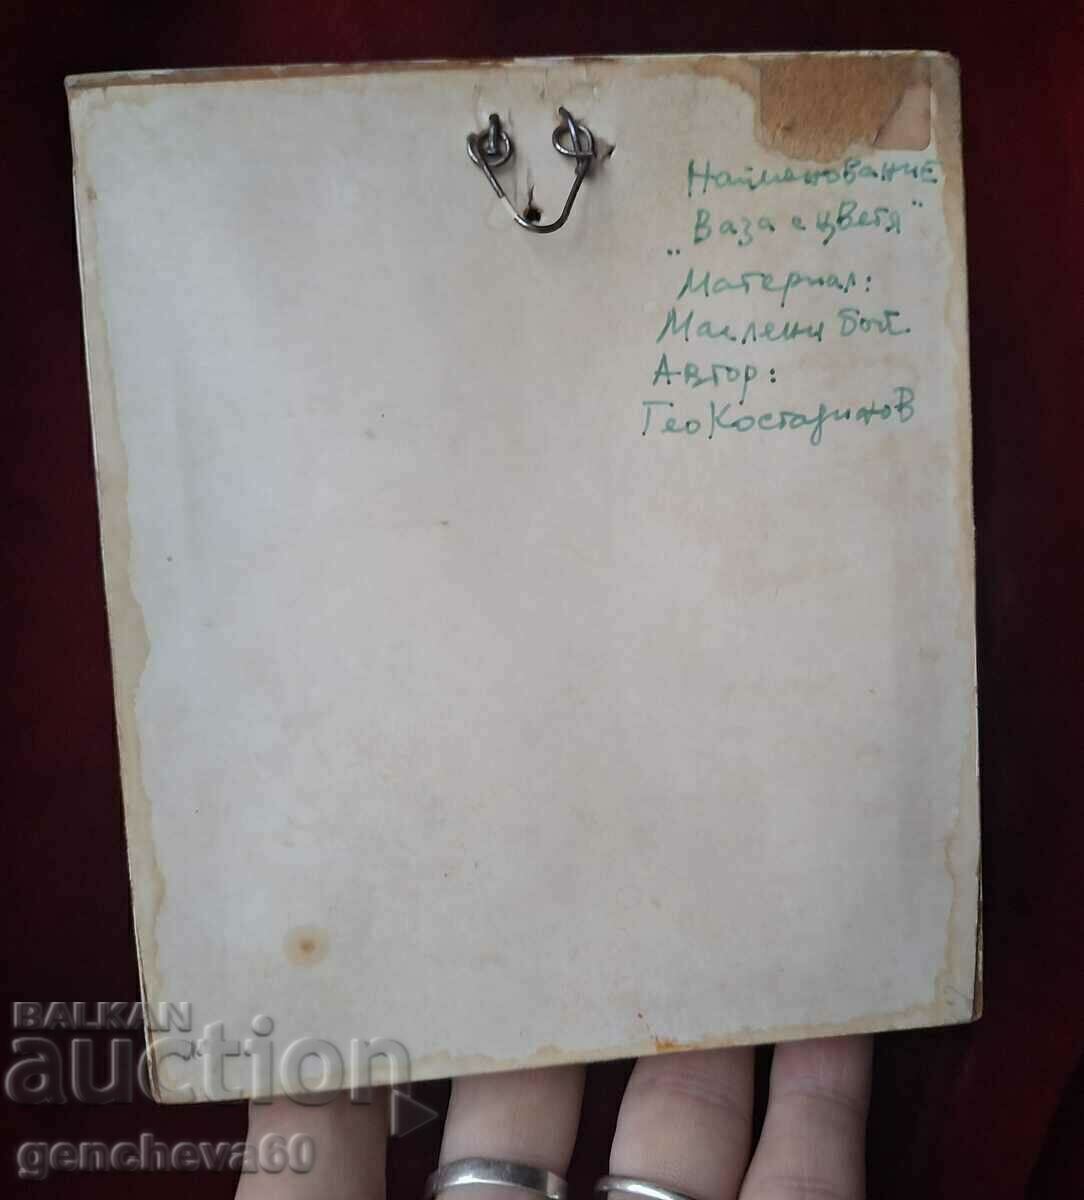 Наименование
„Ваза с цветя"
Материал:
Маслени бои.
Автор:
Гео Костадинов
BALKAN
auction
gencheva60